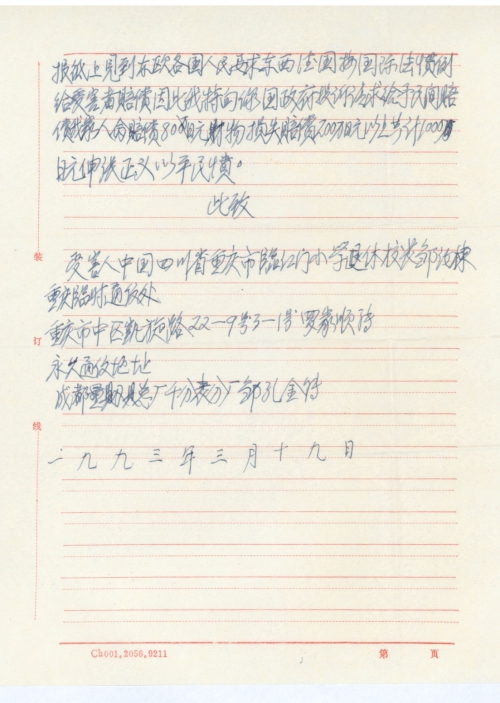 报纸上见到东欧各国人民要求东西德国按国际法惯例
给受害者赔偿因此我特向你国政府提诉请求给予民间赔
偿我家人命赔偿800万日元财物损失赔偿200万日元以上共计1000万
日元伸张正义以平民愤。
此致
受害人中国四川省重庆市临江门小学退休校长邹
重庆临时通讯处
重庆市中区凯旋路22-9号3-1号罗家顺转
永久通收地址
成都量刃具总厂千分表分厂邹孔金转
一九九三年三月十九日
装
订
线
Ch001.2056.9211
第 页